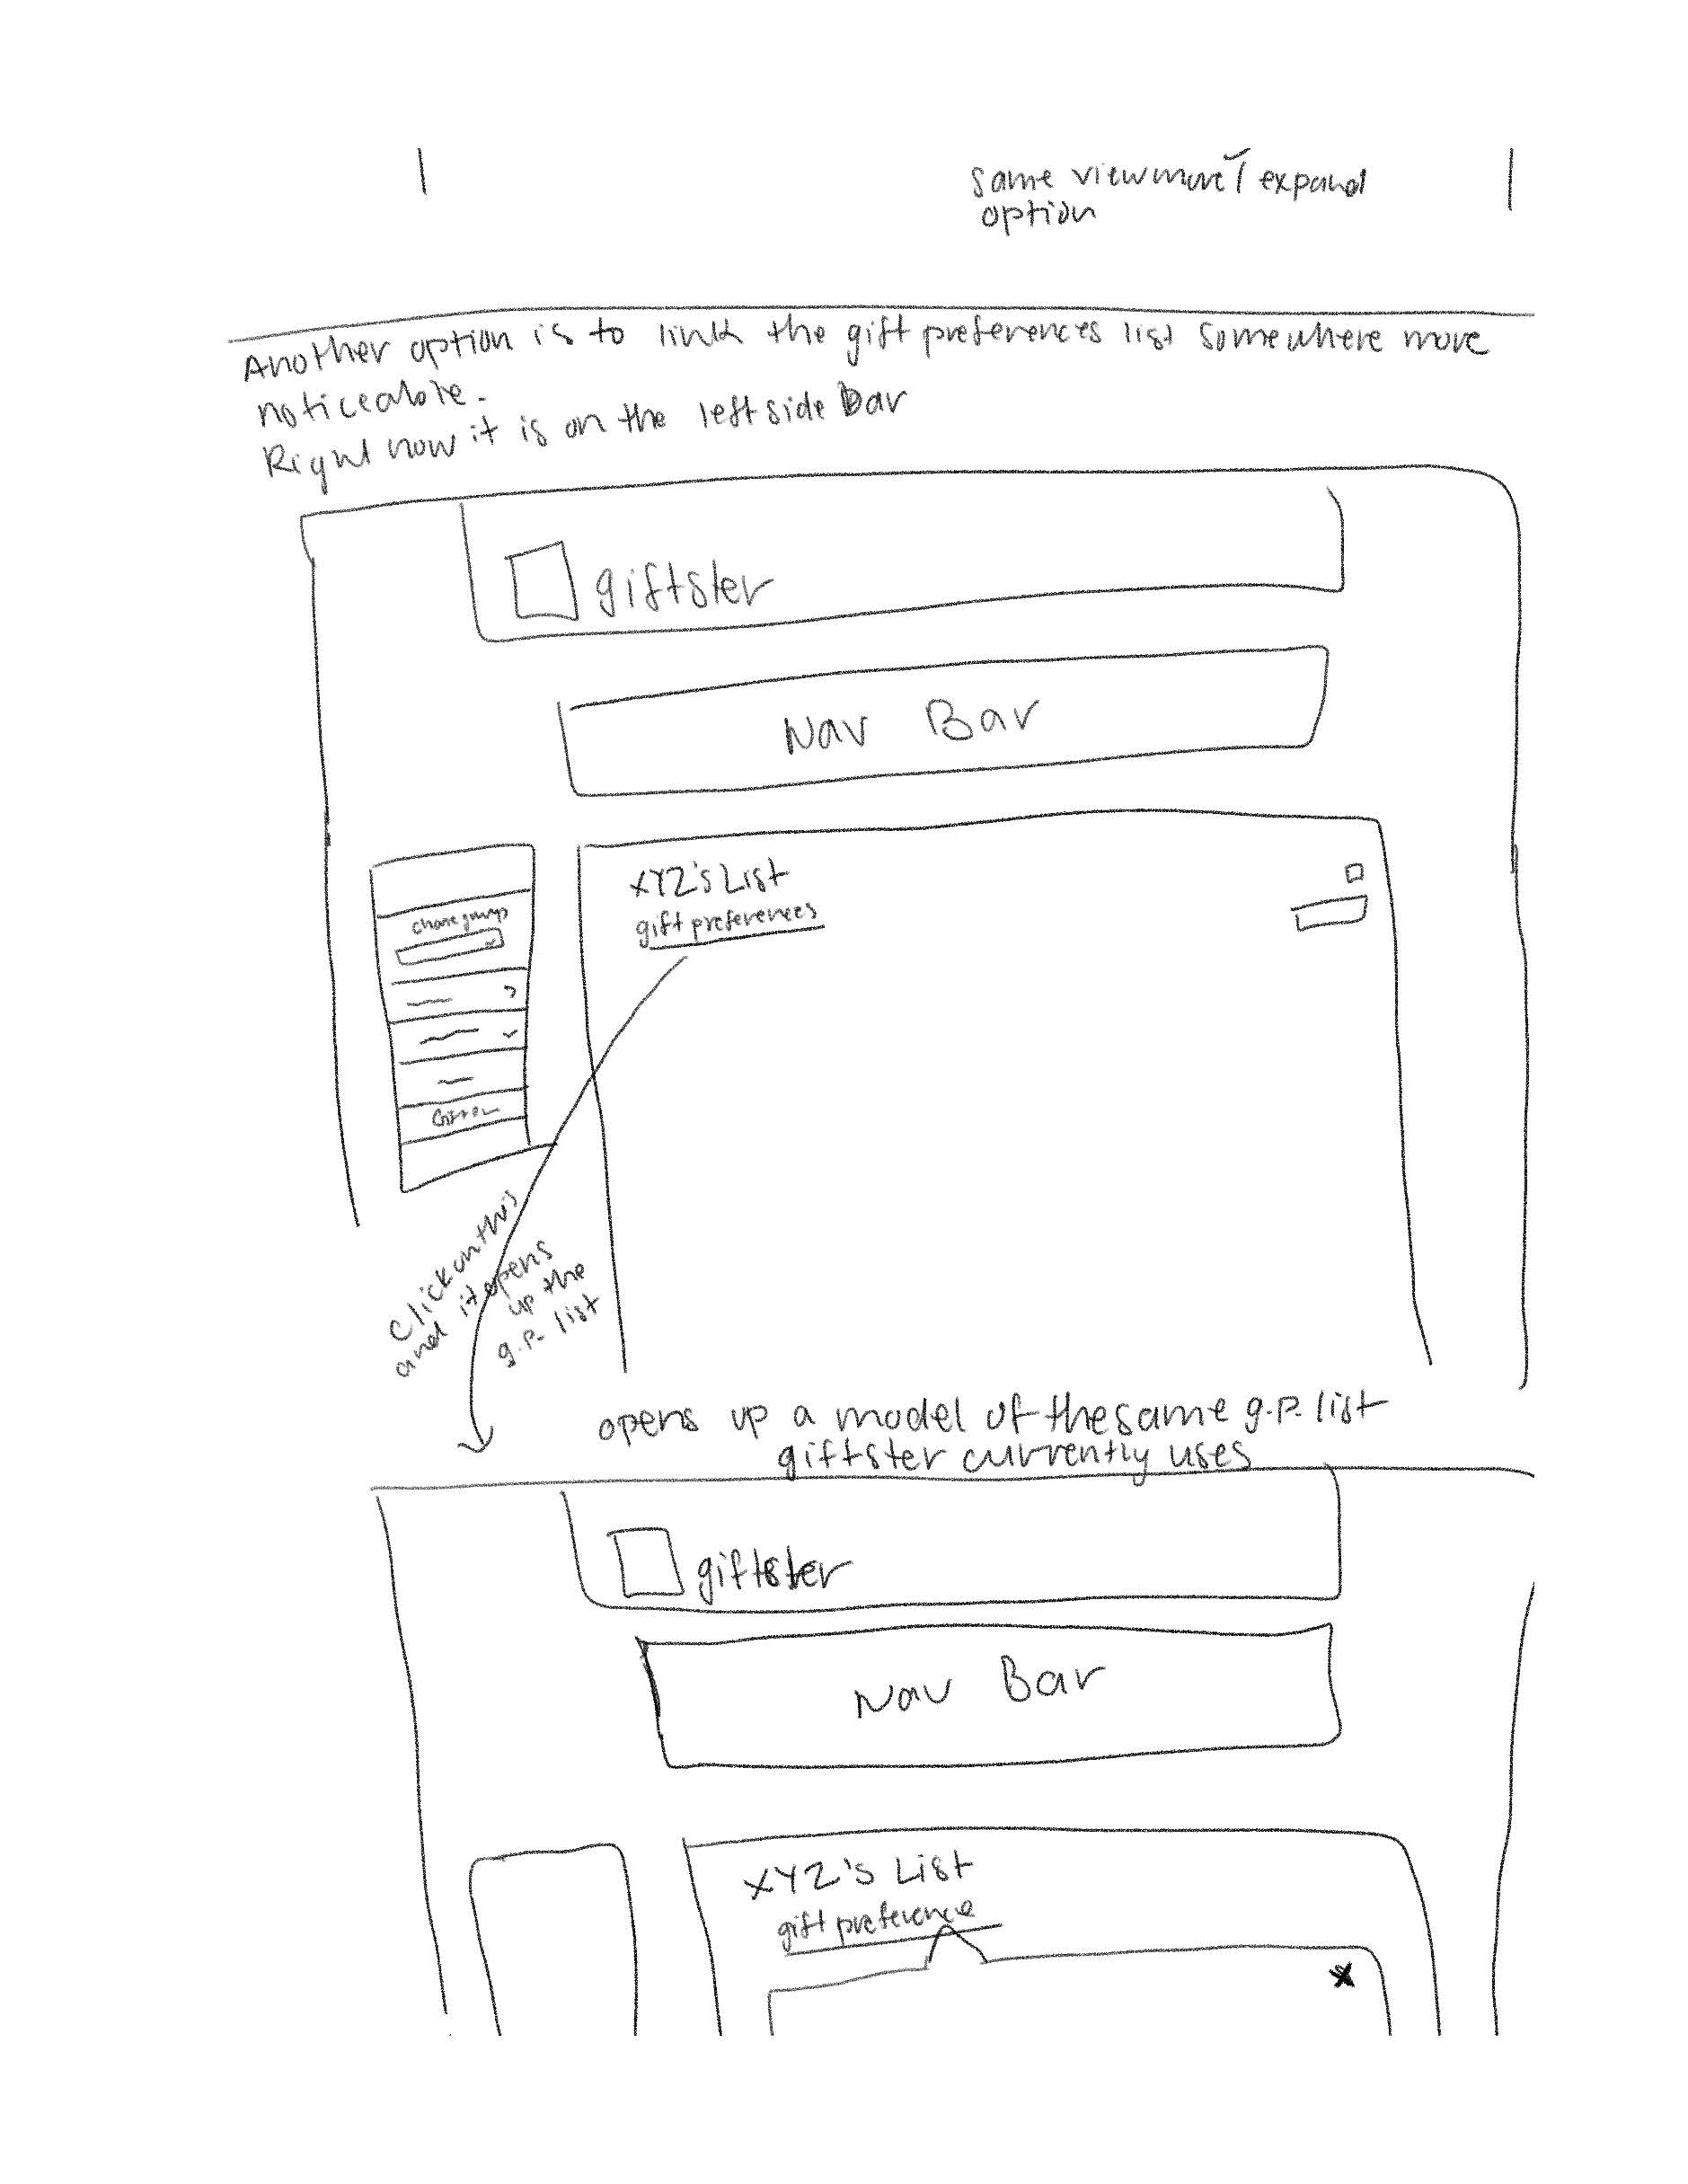 same viewmore / expand
option
Another option is to link the gift preferences list somewhere more
noticeable.
Right now it is on the left side Bar
giftster
Nav Bar
XYZ's List
gift preferences
Click on this
and it opens
up the
g.p. list
opens up a model of the same g.p. list
giftster currently uses
giftster
Nav Bar
XYZ's List
gift preference
X